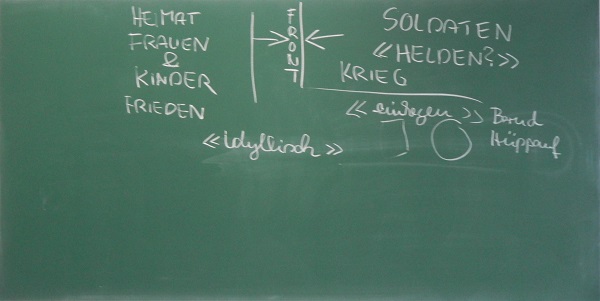 HEIMAT
FRAUEN
&
KINDER
FRIEDEN
FRONT
SOLDATEN
«HELDEN?»
KRIEG
Bernd
Hüppauf
«idyllisch»